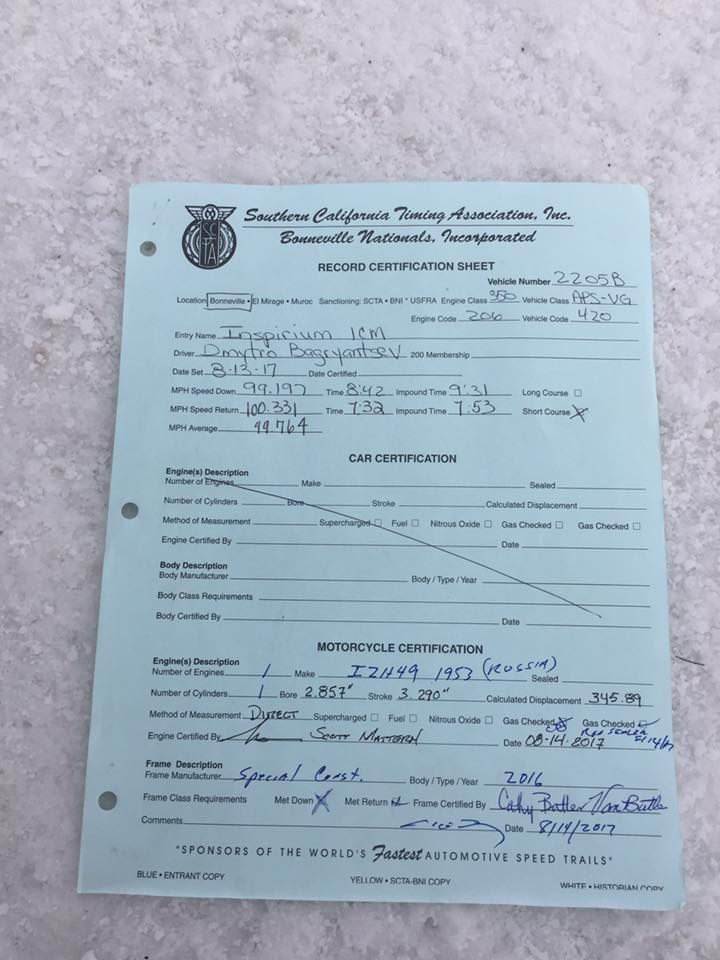 SCTA
Southern California Timing Association, Inc.
Bonneville Nationals, Incorporated
RECORD CERTIFICATION SHEET
Vehicle Number 2205B
Location Bonneville • El Mirage • Muroc Sanctioning: SCTA • BNI * USFRA Engine Class 350 Vehicle Class APS-VG
Engine Code 206 Vehicle Code 420
Entry Name Inspirium ICM
Driver Dmytro Bagryantsev 200 Membership
Date Set 8-13-17 Date Certified
MPH Speed Down 99.197 Time 8:42 Impound Time 9:31 Long Course
MPH Speed Return 100.331 Time 7:32 Impound Time 7:53 Short Course X
MPH Average 99.764
CAR CERTIFICATION
Engine(s) Description
Number of Engines Make Sealed
Number of Cylinders Bore Stroke Calculated Displacement
Method of Measurement Supercharged Fuel Nitrous Oxide Gas Checked Gas Checked
Engine Certified By Date
Body Description
Body Manufacturer Body / Type / Year
Body Class Requirements
Body Certified By Date
MOTORCYCLE CERTIFICATION
Engine(s) Description
Number of Engines 1 Make IZH49 1953 (RUSSIA) Sealed
Number of Cylinders 1 Bore 2.857" Stroke 3.290" Calculated Displacement 345.89
Method of Measurement DIRECT Supercharged Fuel Nitrous Oxide Gas Checked Gas Checked
Engine Certified By Scott Mattern Date 08-14-2017
Frame Description
Frame Manufacturer Special Const. Body / Type / Year 2016
Frame Class Requirements Met Down X Met Return Frame Certified By Cathy Butler
Comments Date 8/14/2017
"SPONSORS OF THE WORLD'S Fastest AUTOMOTIVE SPEED TRAILS"
BLUE • ENTRANT COPY YELLOW • SCTA-BNI COPY WHITE • HISTORIAN COPY